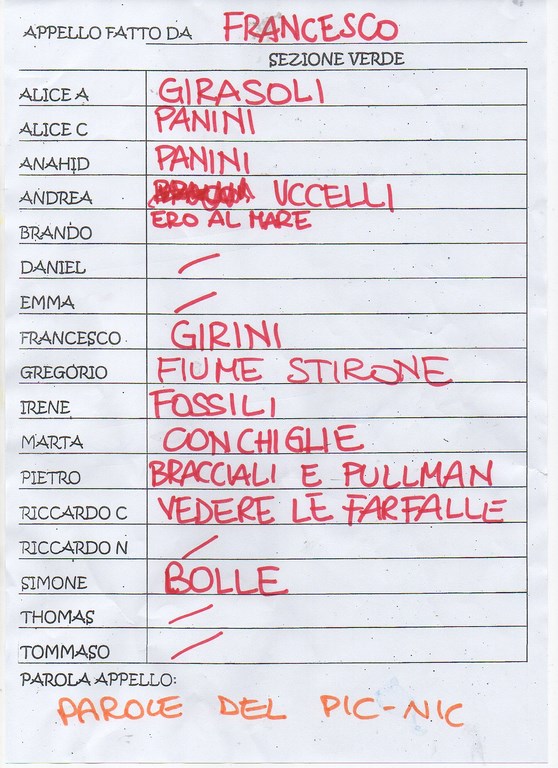 APPELLO FATTO DA FRANCESCO
SEZIONE VERDE
ALICE A GIRASOLI
ALICE C PANINI
ANAHID PANINI
ANDREA UCCELLI
BRANDO ERO AL MARE
DANIEL /
EMMA /
FRANCESCO GIRINI
GREGORIO FIUME STIRONE
IRENE FOSSILI
MARTA CONCHIGLIE
PIETRO BRACCIALI E PULLMAN
RICCARDO C VEDERE LE FARFALLE
RICCARDO N /
SIMONE BOLLE
THOMAS /
TOMMASO /
PAROLA APPELLO:
PAROLE DEL PIC-NIC